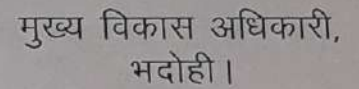 मुख्य विकास अधिकारी,
भदोही।